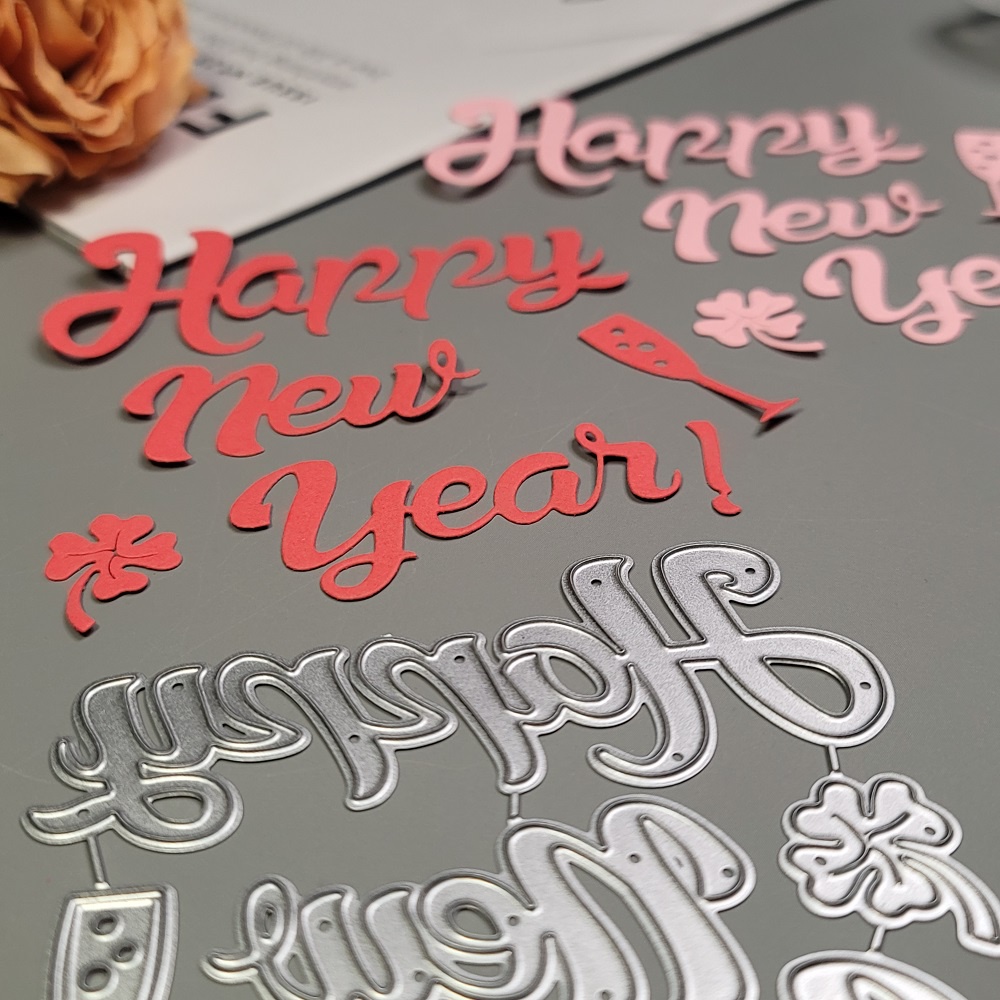 Happy
New
Year!
Happy
New
Ye
Happy
New